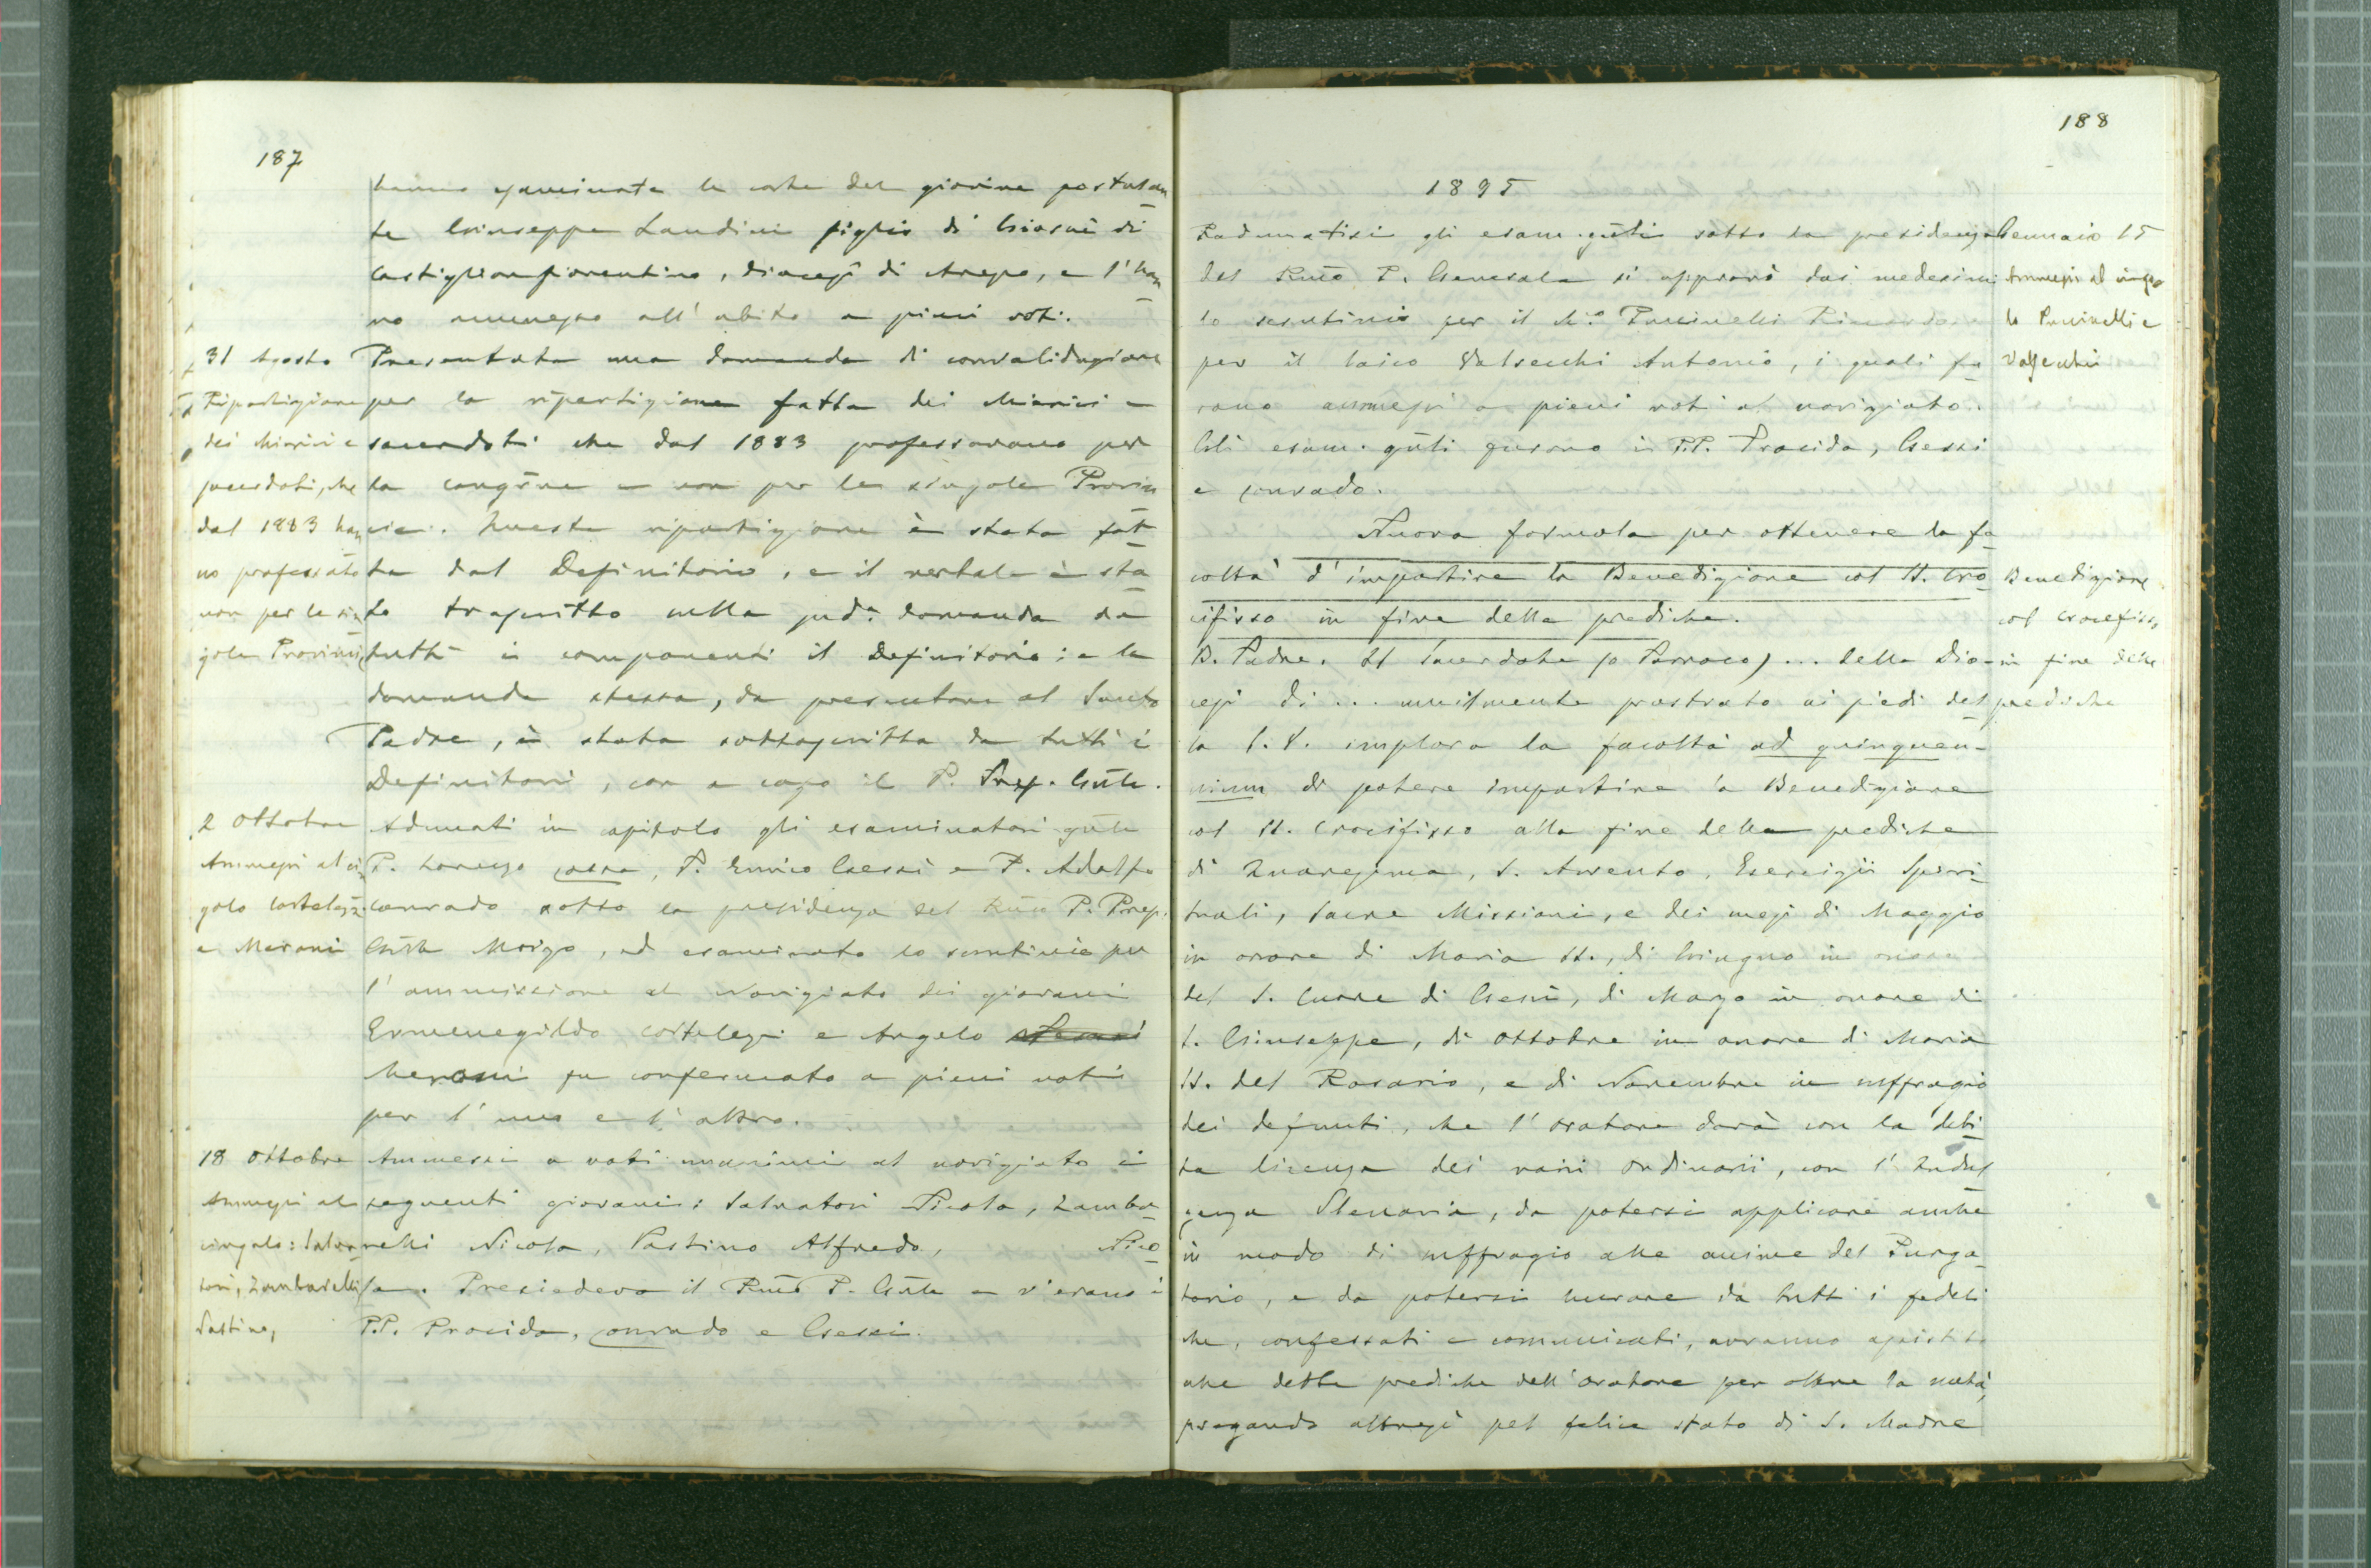 187
hanno esaminate le carte del giovine postulan
te Giuseppe Landini figlio di Giosuè di
Castiglion fiorentino, diocesi di Arezzo, e l'han
no ammesso all'abito a pieni voti.
31 Agosto
Ripartizione
dei chierici e
sacerdoti, che
dal 1883 han
no professato
non per le sin
gole Provincie
Presentata una domanda di convalidazione
per la ripartizione fatta dei chierici e
sacerdoti che dal 1883 professarono per
la congñe e non per le singole Provin
cie. Questa ripartizione è stata fat
ta dal Definitorio, e il verbale è sta
to trascritto nella sudª domanda da
tutti i componenti il Definitorio: e la
domanda stessa, da presentare al Santo
Padre, è stata sottoscritta da tutti i
Definitori, con a capo il P. Prep. Gñle.
2 Ottobre
Ammessi al cin
golo Cortelezzi
e Meroni
Adunati in capitolo gli esaminatori gñli
P. Lorenzo Cossa, P. Enrico Gessi e P. Adolfo
Conrado sotto la presidenza del Rm̃o P. Prep.
Gñle Moizo, ed esaminato lo scrutinio per
l'ammissione al Noviziato dei giovani
Ermenegildo Cortelezzi e Angelo
Meroni fu confermato a pieni voti
per l'uno e l'altro.
18 Ottobre
Ammessi al
cingolo: Salva
tori, Zambarelli
Pastino,
Ammessi a voti unanimi al noviziato i
seguenti giovani: Salvatori Nicola, Zamba
relli Nicola, Pastino Alfredo, Nico
la. Presiedeva il Rm̃o P. Gñle e v'erano i
P.P. Procida, Conrado e Gessi.
188
1895
Radunatisi gli esam. gñli sotto la presidenza
del Rm̃o P. Generale si approvò dai medesimi
lo scrutinio per il Ch.º Puccinelli Riccardo e
per il laico Valsecchi Antonio, i quali fu
rono ammessi a pieni voti al noviziato.
Gli esam. gñli furono i P.P. Procida, Gessi
e Conrado.
Gennaio 15
Ammessi al cingo
lo Puccinelli e
Valsecchi
Nuova formola per ottenere la fa
coltà d'impartire la Benedizione col SS. Cro
cifisso in fine delle prediche.
Benedizione
col Crocefisso
in fine delle
prediche
B. Padre. Il Sacerdote (o Parroco) ... della Dio-
cesi di ... umilmente prostrato ai piedi del
la S. V. implora la facoltà ad quinquen-
nium di potere impartire la Benedizione
col SS. Crocifisso alla fine delle prediche
di Quaresima, S. Avvento, Esercizii Spiri
tuali, Sacre Missioni, e dei mesi di Maggio
in onore di Maria SS., di Giugno in onore
del S. Cuore di Gesù, di Marzo in onore di
S. Giuseppe, di Ottobre in onore di Maria
SS. del Rosario, e di Novembre in suffragio
dei defunti, che l'oratore darà con la debi
ta licenza dei varii Ordinarii, con l'Indul
genza Plenaria, da potersi applicare anche
in modo di suffragio alle anime del Purga
torio, e da potersi lucrare da tutti i fedeli
che, confessati e comunicati, avranno assistito
alle dette prediche dell'oratore per oltre la metà,
pregando altresì pel felice stato di S. Madre